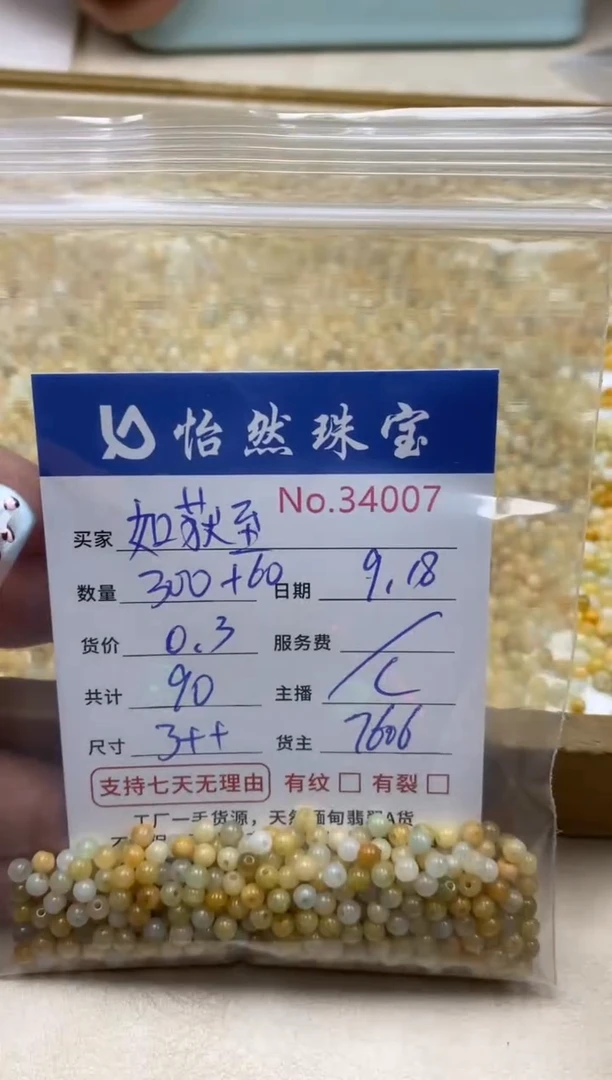 怡然珠宝
No.34007
买家 如荻至
数量 300+60 日期 9.18
货价 0.3 服务费 /
共计 90 主播 C
尺寸 3++ 货主 7606
支持七天无理由 有纹 有裂
工厂一手货源，天然缅甸翡翠A货